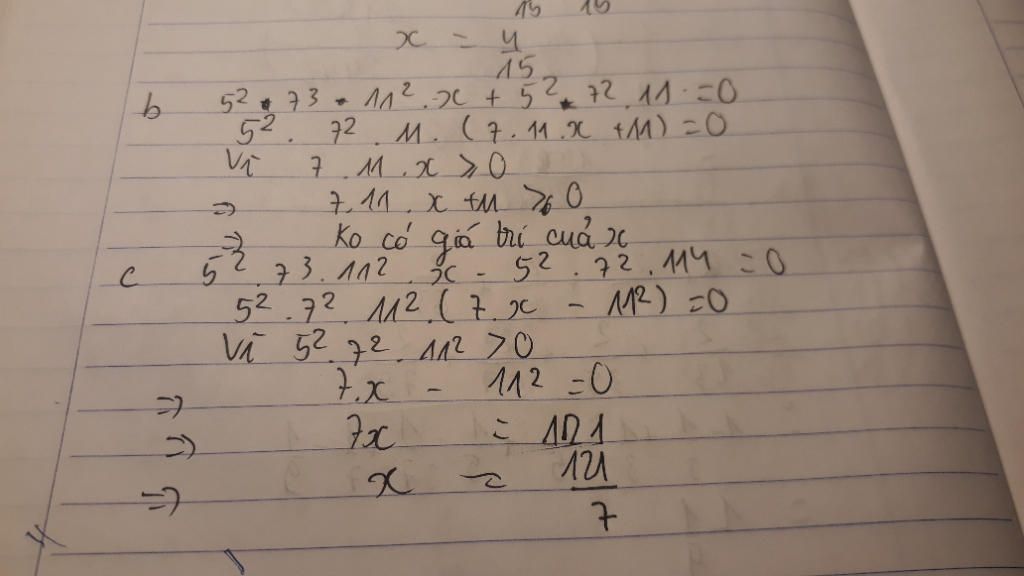 15 15
x = 4/15
b 5² . 7³ . 11² . x + 5² . 7² . 11 . = 0
5² . 7² . 11 . (7 . 11 . x + 11) = 0
Vì 7 . 11 . x ⩾ 0
=> 7.11 . x + 11 ⩾ 0
=> Ko có giá trí cuả x
c 5² . 7³ . 11² . x - 5² . 7² . 11⁴ = 0
5² . 7² . 11² . (7 . x - 11²) = 0
Vì 5² . 7² . 11² > 0
=> 7.x - 11² = 0
=> 7x = 121
=> x = 121/7